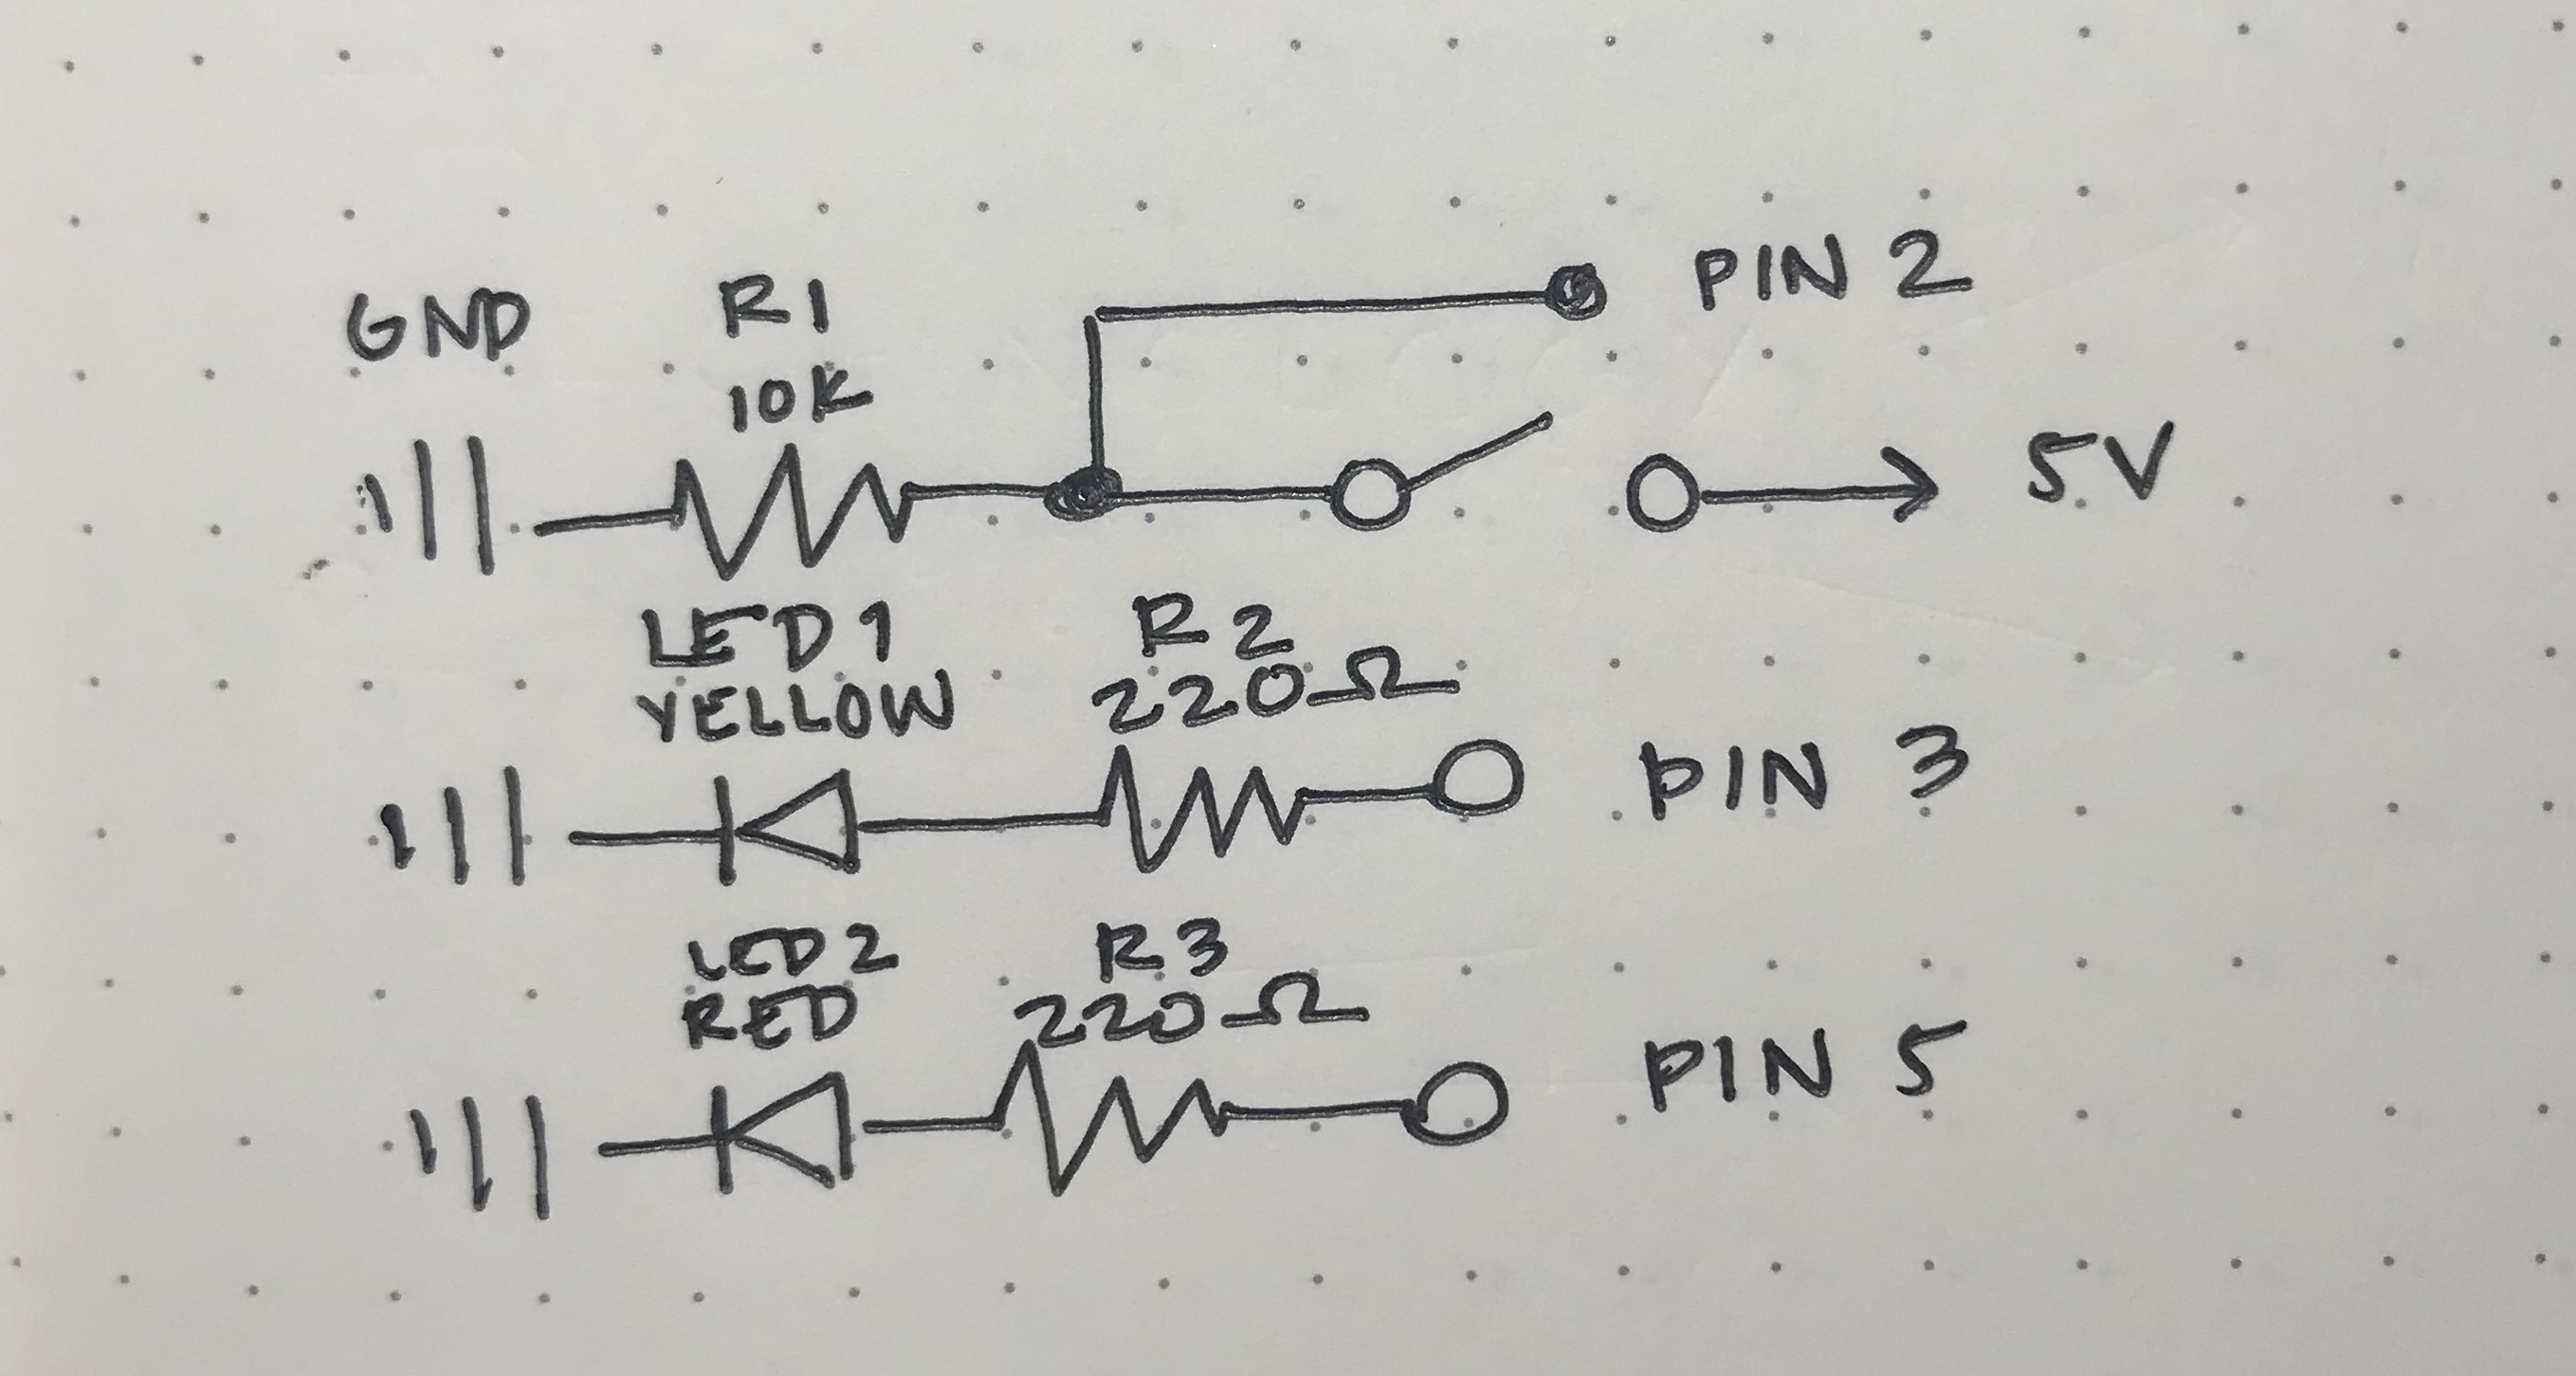 GND
R1
10K
PIN 2
5V
LED 1
YELLOW
R2
220Ω
PIN 3
LED 2
RED
R3
220Ω
PIN 5